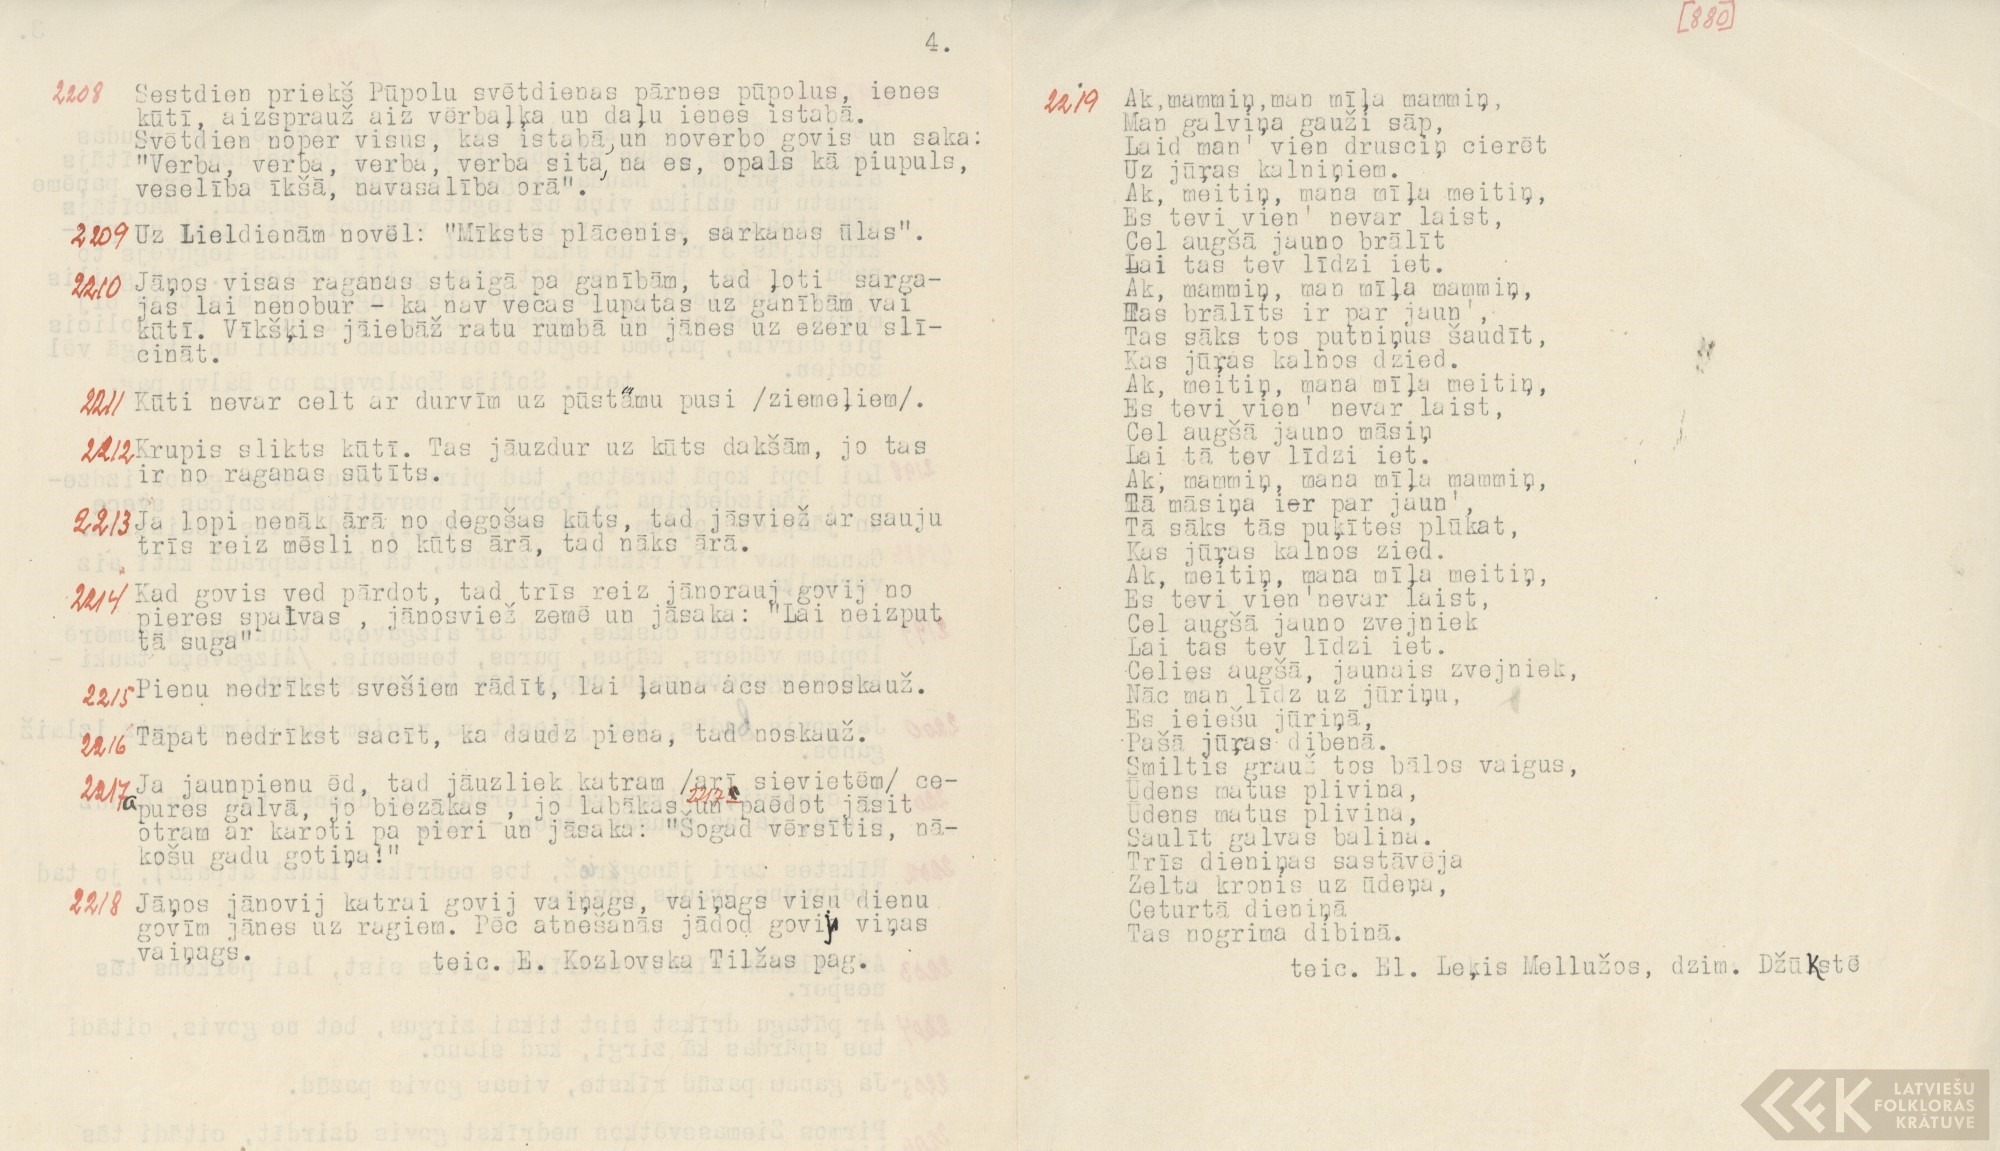 4.
2208 Sestdien priekš Pūpolu svētdienas pārnes pūpolus, ienes
kūtī, aizsprauž aiz vērbaļķa un daļu ienes istabā.
Svētdien noper visus, kas istabā, un noverbo govis un saka:
"Verba, verba, verba, verba sita, na es, opals kā piupuls,
veselība īkšā, navasalība orā".
2209 Uz Lieldienām novēl: "Mīksts plācenis, sarkanas ūlas".
2210 Jāņos visas raganas staigā pa ganībām, tad ļoti sarga-
jas lai nenobur - ka nav vecas lupatas uz ganībām vai
kūtī. Vīkšķis jāiebāž ratu rumbā un jānes uz ezeru slī-
cināt.
2211 Kūti nevar celt ar durvīm uz pūstāmu pusi /ziemeļiem/.
2212 Krupis slikts kūtī. Tas jāuzdur uz kūts dakšām, jo tas
ir no raganas sūtīts.
2213 Ja lopi nenāk ārā no degošas kūts, tad jāsviež ar sauju
trīs reiz mēsli no kūts ārā, tad nāks ārā.
2214 Kad govis ved pārdot, tad trīs reiz jānorauj govij no
pieres spalvas , jānosviež zemē un jāsaka: "Lai neizput
tā suga"
2215 Pienu nedrīkst svešiem rādīt, lai ļauna acs nenoskauž.
2216 Tāpat nedrīkst sacīt, ka daudz piena, tad noskauž.
2217a Ja jaunpienu ēd, tad jāuzliek katram /arī sievietēm/ ce-
pures galvā, jo biezākas , jo labākas un paēdot jāsit
otram ar karoti pa pieri un jāsaka: "Šogad vērsītis, nā-
košu gadu gotiņa!"
2218 Jāņos jānovij katrai govij vaiņags, vaiņags visu dienu
govīm jānes uz ragiem. Pēc atnešanās jādod govij viņas
vaiņags.
teic. E. Kozlovska Tilžas pag.
[880]
2219 Ak,mammiņ,man mīļa mammiņ,
Man galviņa gauži sāp,
Laid man' vien drusciņ cierēt
Uz jūŗas kalniņiem.
Ak, meitiņ, mana mīļa meitiņ,
Es tevi vien' nevar laist,
Cel augšā jauno brālīt
Lai tas tev līdzi iet.
Ak, mammiņ, man mīļa mammiņ,
Tas brālīts ir par jaun',
Tas sāks tos putniņus šaudīt,
Kas jūŗas kalnos dzied.
Ak, meitiņ, mana mīļa meitiņ,
Es tevi vien' nevar laist,
Cel augšā jauno māsiņ
Lai tā tev līdzi iet.
Ak, mammiņ, mana mīļa mammiņ,
Tā māsiņa ier par jaun',
Tā sāks tās puķītes plūkat,
Kas jūŗas kalnos zied.
Ak, meitiņ, mana mīļa meitiņ,
Es tevi vien'nevar laist,
Cel augšā jauno zvejniek
Lai tas tev līdzi iet.
Celies augšā, jaunais zvejniek,
Nāc man līdz uz jūriņu,
Es ieiešu jūriņā,
Pašā jūŗas dibenā.
Smiltis grauž tos bālos vaigus,
Ūdens matus plivina,
Ūdens matus plivina,
Saulīt galvas balina.
Trīs dieniņas sastāvēja
Zelta kronis uz ūdeņa,
Ceturtā dieniņā
Tas nogrima dibinā.
teic. El. Leķis Mellužos, dzim. Džūkstē
LATVIEŠU
FOLKLORAS
KRĀTUVE